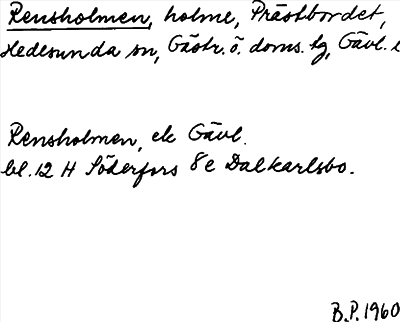 Rensholmen, holme, Prästbordet,
Hedesunda sn, Gästr. ö. doms. tg, Gävl. l
Rensholmen, ek Gävl.
bl. 12 H Söderfors 8e Dalkarlsbo.
B.P. 1960